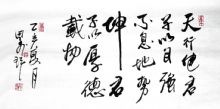 天行健君
子以自強
不息地勢
坤君
子以厚德
載物